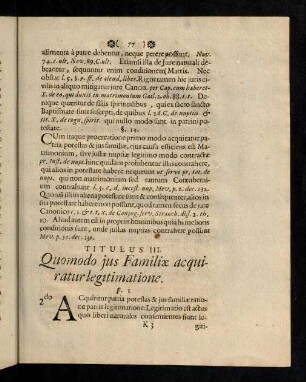 ( 77 )
alimenta à patre debentur, neque petere possunt. Nov.
74. c. ult. Nov. 89. C. ult. Etiamsi illa de Jure naturali de-
beantur, sequuntur enim conditionem Matris. Nec
obstat l. 5. §. ff. de alend. liber. Rigor tamen hic juris ci-
vilis in aliquo mitigatur jure Canon. per Cap. cum haberet
X. de eo, qui duxit in matrimonium
nique quæritur de filiis spiritualibus, quies sacro sancto
Baptismate sunt suscepti, de quibus l. 26. C. de nuptiis &
tit. X. de cogn. spirit. qui nullo modo sunt in patriâ po-
testate.
§. 14.
CUm itaque procreatione primo modo acquiratur pa-
tria potestas & jus familiæ, ejus causa efficiens est Ma-
trimonium, sive justæ nuptiæ legitimo modo contractæ
pr. Inst. de nupt. hinc quidam prohibentur illas contrahere,
qui alios in potestate habere nequeunt ut servus pr. tit. de
nupt. qui non matrimonium sed tantum Contubernium
contrahunt
qui alios in potestate
potestate habere non possunt, quod tamen secus de jure
Canonico
10. Aliud autem est in propriis hominibus quia hi melioris
conditionis sunt, unde justas nuptias contrahere possunt
Mev. p. 3. dec. 130.
TITULUS III.
Quomodo jus Familiæ acqui-
ratur legitimatione.
§. 1
2do ACquiritur patria potestas & jus familiæ ratio-
ne patris legitimatione. Legitimatio est actus
quo liberi naturales consentientes fiunt le-
K 3 giti-